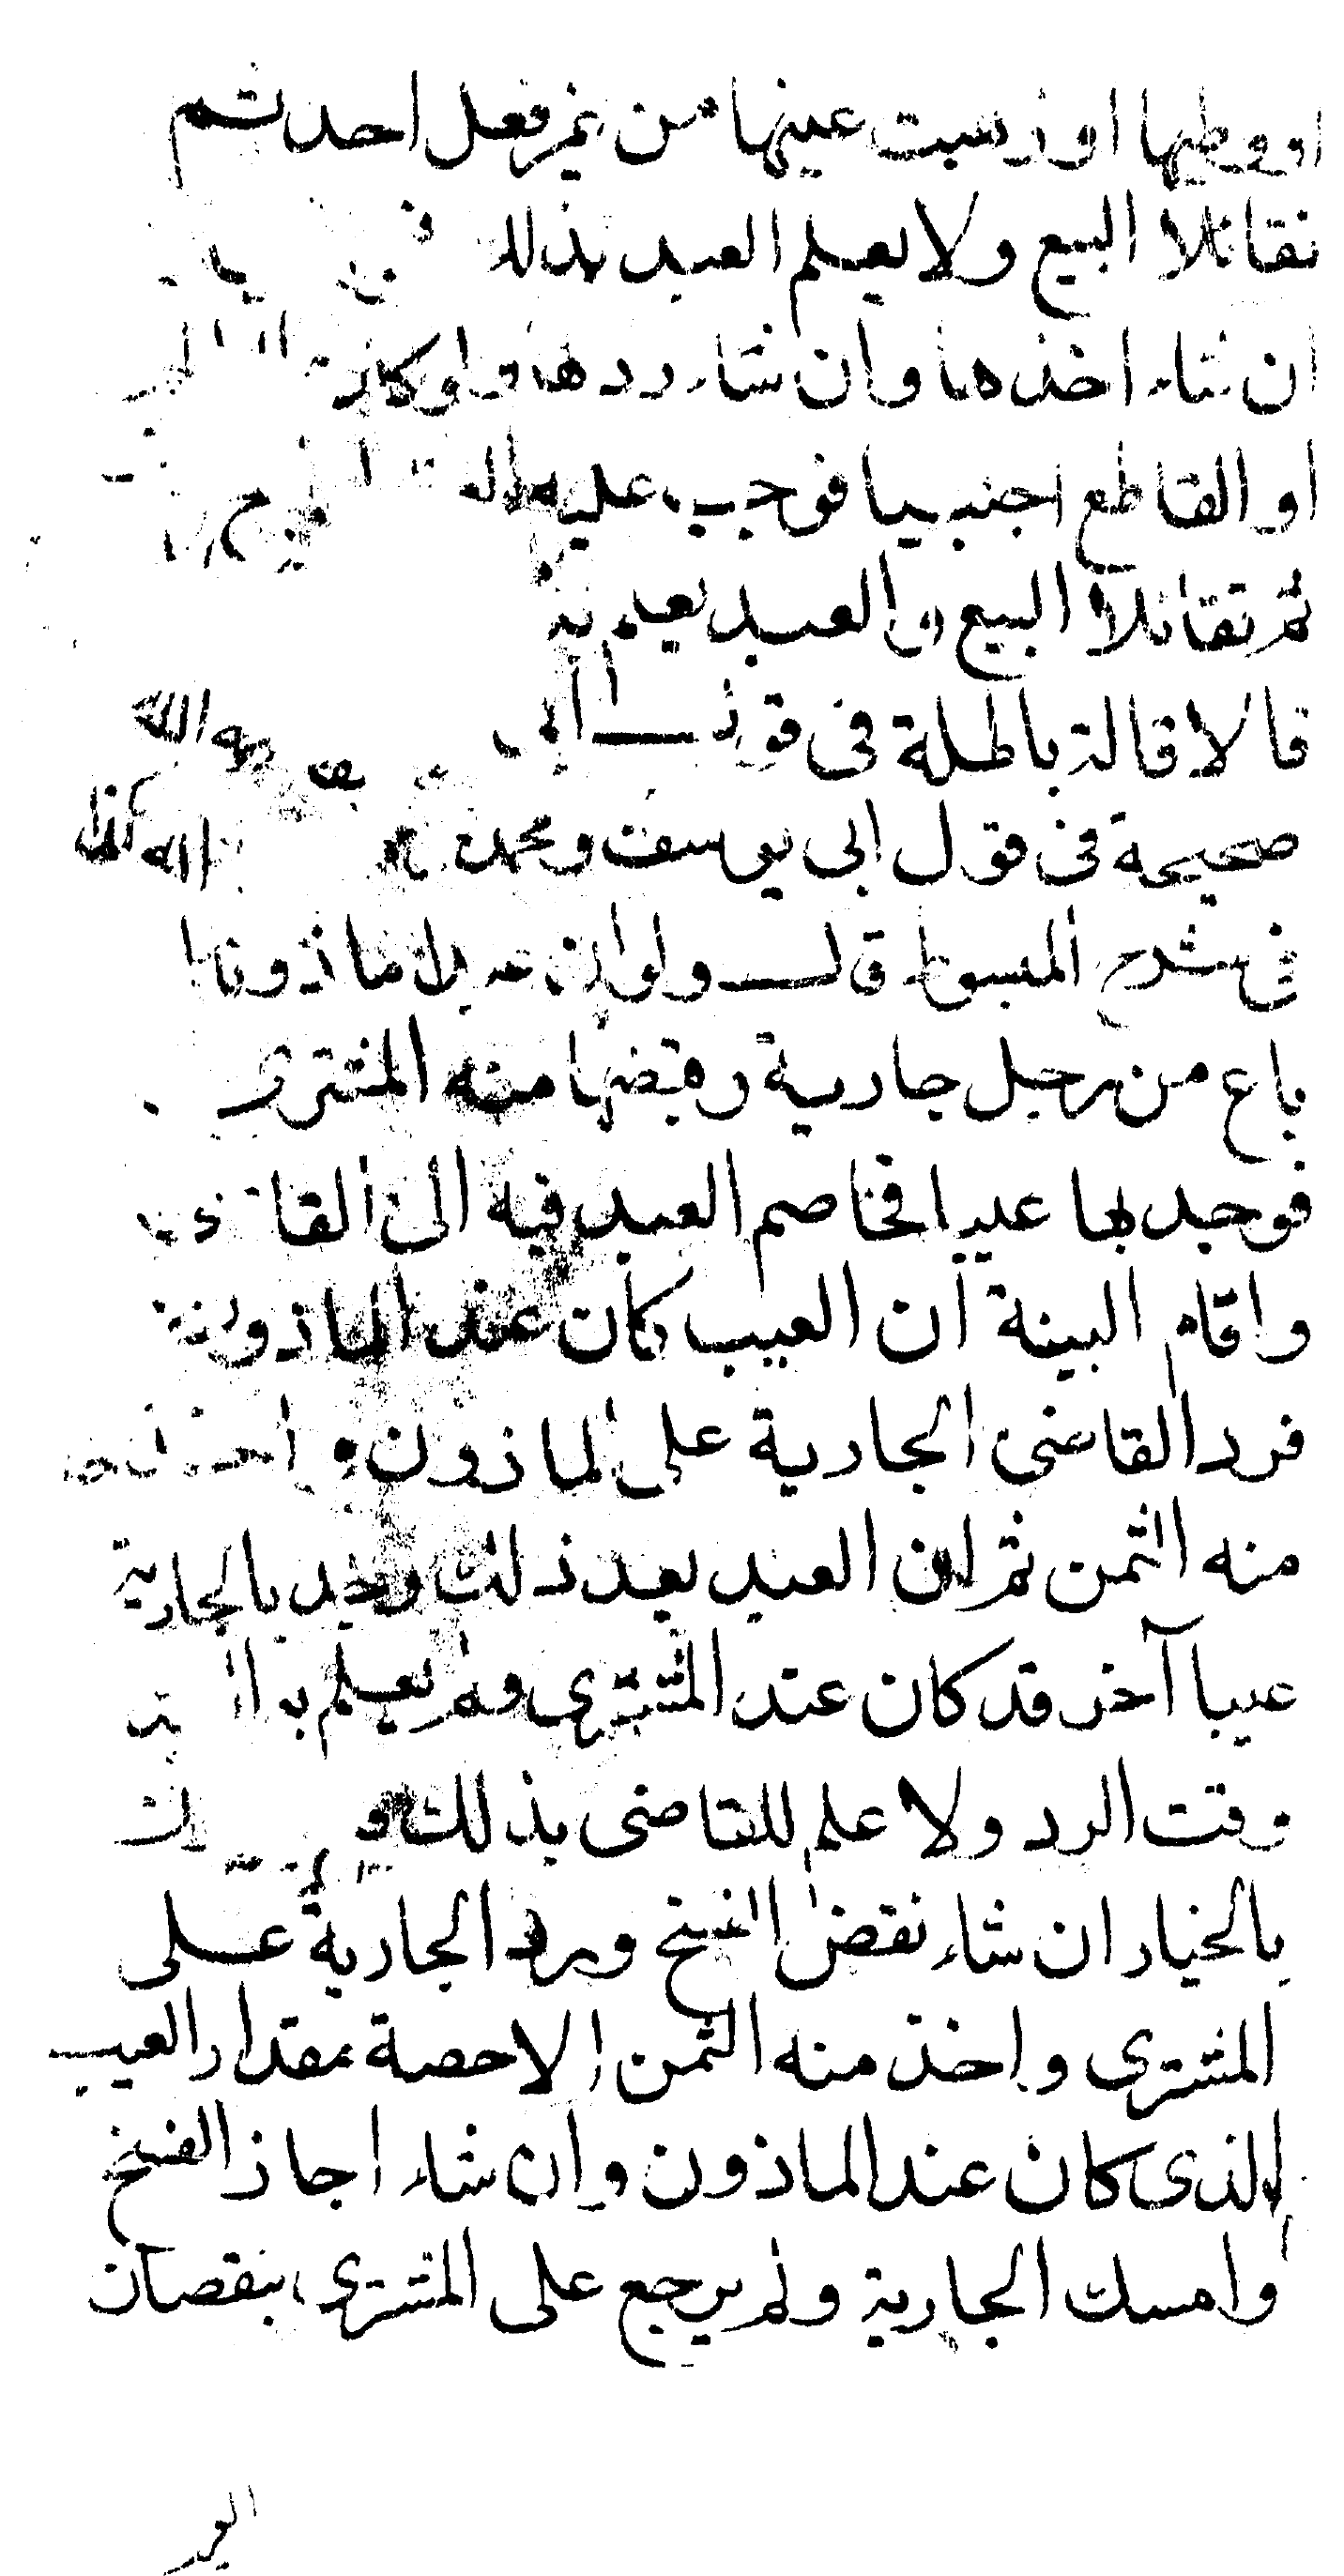 او وطيها او ذهبت عينها من غير فعل احد ثم
تقائلا البيع ولا يعلم العبد بذلك
ان شاء اخذها وان شاء ردها ولو كان
او القاطع اجنبيا فوجب عليه
ثم تقائلا البيع والعبد يعلم
فالاقالة باطلة في قول ابي رحمه الله
صحيحة في قول ابي يوسف ومحمد الله كذا
في شرح المبسوط قال ولو ان ماذونا
باع من رجل جارية وقبضها منه المشتري
فوجد بها عيبا فخاصم العبد فيه الى القاضي
واقام البينة ان العيب كان عند الماذون
فرد القاضي الجارية على الماذون واخذ
منه الثمن ثم ان العبد بعد ذلك وجد بالجارية
عيبا آخر قد كان عند المشتري ولم يعلم به
وقت الرد ولا علم للقاضي بذلك
بالخيار ان شاء نقض الفسخ ورد الجارية على
المشتري واخذ منه الثمن الا حصة مقدار العيب
الذي كان عند الماذون وان شاء اجاز الفسخ
وامسك الجارية ولم يرجع على المشتري بنقصان